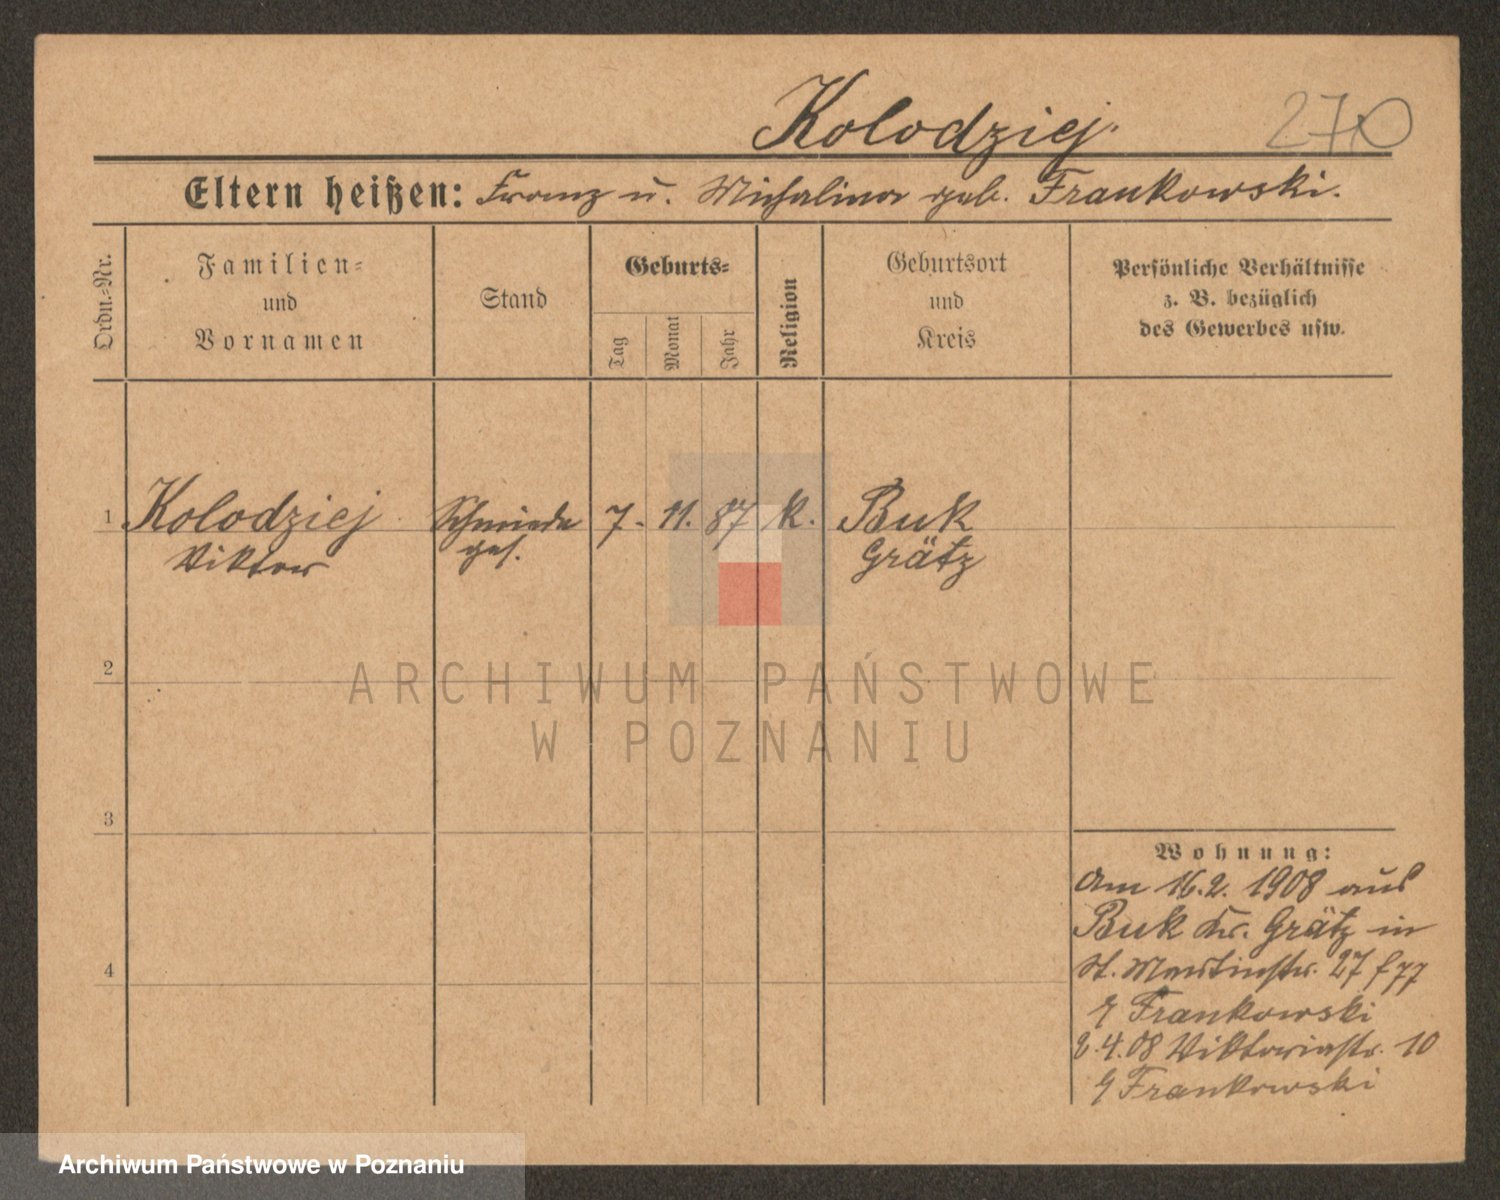 Kolodziej. 270
Eltern heißen: Franz u. Michalina geb. Frankowski.
Ordn.-Nr.
Familien-
und
Vornamen
Stand
Geburts-
Tag
Monat
Jahr
Religion
Geburtsort
und
Kreis
Persönliche Verhältnisse
z. B. bezüglich
des Gewerbes usw.
1 Kolodziej Schmiede 7. 11. 87 k. Buk
Viktor ges. Grätz
2
ARCHIWUM PAŃSTWOWE
W POZNANIU
3
4
Wohnung:
Am 16.2. 1908 aus
Buk Kr. Grätz in
St. Martinstr. 27
Frankowski
2.4.08 Viktoriastr. 10
Frankowski
Archiwum Państwowe w Poznaniu